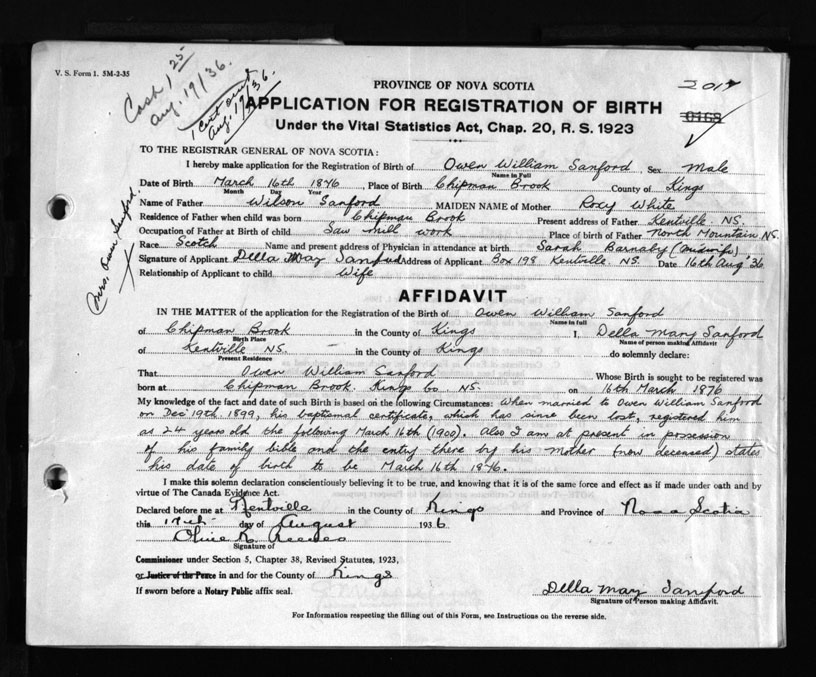 V. S. Form 1. 5M-2-35
Cash 1 25
Aug. 19/36.
1 Cert
Aug. 19/36.
2017
PROVINCE OF NOVA SCOTIA
APPLICATION FOR REGISTRATION OF BIRTH
Under the Vital Statistics Act, Chap. 20, R. S. 1923
TO THE REGISTRAR GENERAL OF NOVA SCOTIA:
I hereby make application for the Registration of Birth of Owen William Sanford, Sex Male
Name in Full
Date of Birth March 16th 1876, Place of Birth Chipman Brook County of Kings
Month Day Year
Name of Father Wilson Sanford MAIDEN NAME of Mother Roxy White
Residence of Father when child was born Chipman Brook Present address of Father Kentville NS.
Occupation of Father at Birth of child Saw mill work Place of birth of Father North Mountain NS.
Race Scotch Name and present address of Physician in attendance at birth Sarah Barnaby (Midwife)
Signature of Applicant Della May Sanford Address of Applicant Box 198 Kentville NS. Date 16th Aug '36
Relationship of Applicant to child Wife
Mrs. Owen Sanford.
AFFIDAVIT
IN THE MATTER of the application for the Registration of the Birth of Owen William Sanford
Name in full
of Chipman Brook in the County of Kings I, Della May Sanford
Birth Place Name of person making Affidavit
of Kentville NS. in the County of Kings do solemnly declare:
Present Residence
That Owen William Sanford Whose Birth is sought to be registered was
born at Chipman Brook. Kings Co NS. on 16th March 1876
My knowledge of the fact and date of such Birth is based on the following Circumstances: When married to Owen William Sanford
on Dec 19th 1899, his baptismal certificate, which has since been lost, registered him
as 24 years old the following March 16th (1900). Also I am at present in possession
of his family bible and the entry there by his mother (now deceased) states
his date of birth to be March 16th 1876.
I make this solemn declaration conscientiously believing it to be true, and knowing that it is of the same force and effect as if made under oath and by
virtue of The Canada Evidence Act.
Declared before me at Kentville in the County of Kings and Province of Nova Scotia
this 17th day of August 1936
Olive R.
Signature of
Commissioner under Section 5, Chapter 38, Revised Statutes, 1923,
or Justice of the Peace in and for the County of Kings
If sworn before a Notary Public affix seal.
Della May Sanford
Signature of Person making Affidavit.
For Information respecting the filling out of this Form, see Instructions on the reverse side.